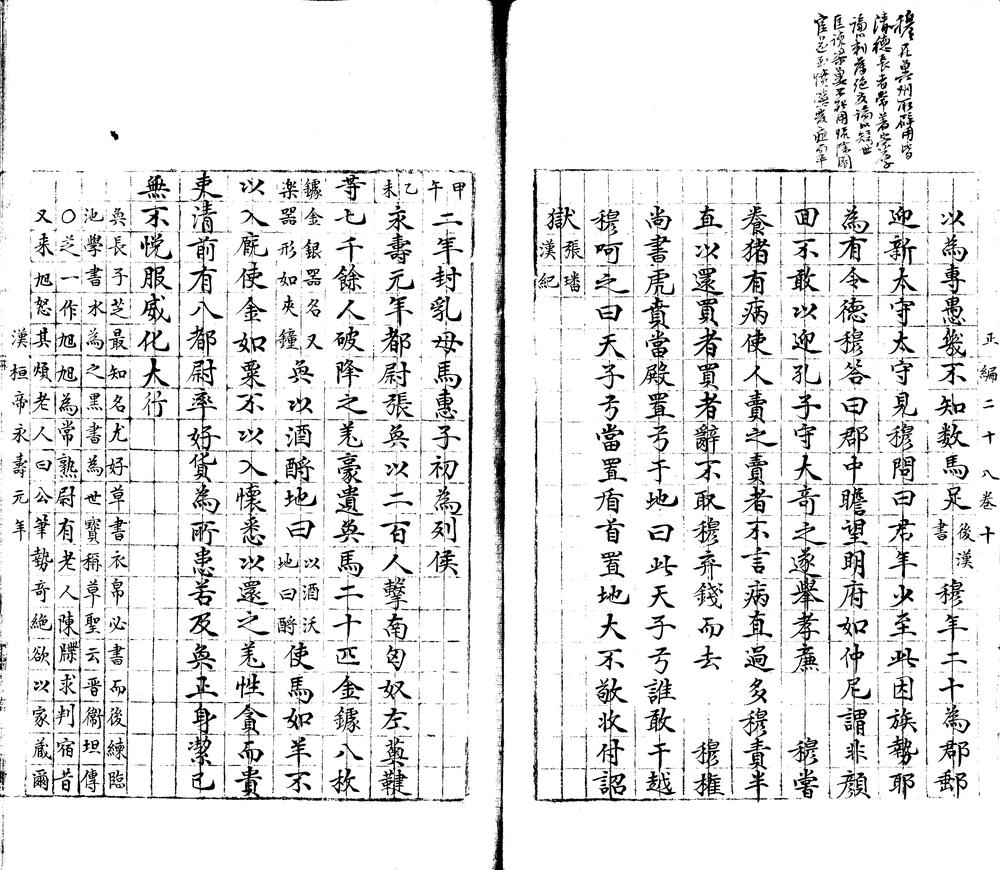 穆在冀州所辟用皆
清德長者
正編二十八卷 十
以為專愚幾不知数馬足 後漢書 穆年二十為郡郵
迎新太守太守見穆問曰君年少至此因族勢耶
為有令德穆答曰郡中瞻望明府如仲尼謂非顔
回不敢以迎孔子守大奇之遂舉孝廉 穆嘗
養猪有病使人賣之賣者不言病直過多穆責半
直以還買者買者辭不取穆弃錢而去 穆擢
尚書虎賁當殿置弓于地曰此天子弓誰敢干越
穆呵之曰天子弓當置盾首置地大不敬收付詔
獄 張璠漢紀
甲午 二年封乳母馬惠子初為列侯
乙未 永壽元年都尉張奐以二百人擊南匈奴左薁鞬
等七千餘人破降之羌豪遺奐馬二十匹金鐻八枚
鐻金銀器名又樂器形如夾鐘 奐以酒酹地曰 以酒沃地曰酹 使馬如羊不
以入廐使金如粟不以入懷悉以還之羌性貪而貴
吏清前有八都尉率好貨為所患苦及奐正身潔己
無不悦服威化大行
奐長子芝最知名尤好草書衣帛必書而後練臨
池學書水為之黒書為世寶稱草聖云晋衛坦傳
〇芝一作旭旭為常熟尉有老人陳牒求判宿昔
又来旭怒其煩老人曰公筆勢奇絶欲以家蔵爾
漢桓帝永壽元年